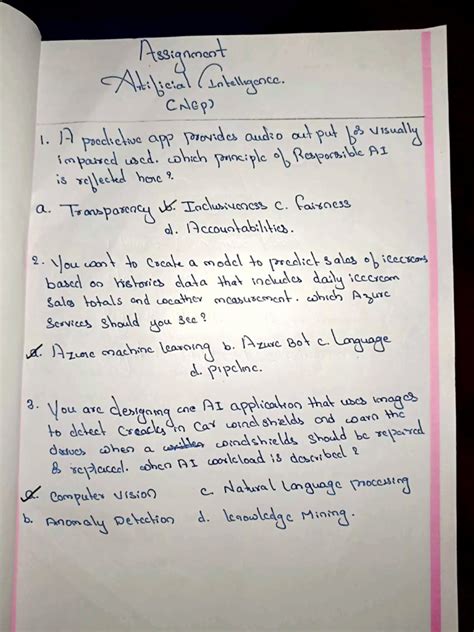 Assignment
Artificial Intelligence.
(NGP)
1. A predictive app provides audio output for visually
impaired used. which principle of Responsible AI
is reflected here?
a. Transparency b. Inclusiveness c. fairness
d. Accountabilities.
2. You want to Create a model to predict sales of icecream
based on historics data that includes daily icecream
sales totals and weather measurement. which Azure
Services should you see?
a. Azure machine learning b. Azure Bot c. Language
d. pipeline.
3. You are designing one AI application that uses images
to detect Creacks in car windshields and warn the
drives when a windshields should be repaired
& replaced. when AI workload is described?
a. Computer Vision c. Natural language processing
b. Anomaly Detection d. knowledge Mining.